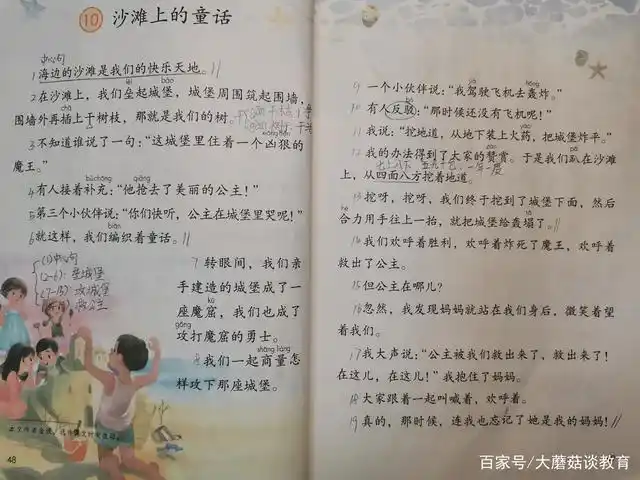 10 沙滩上的童话
中心句
1 海边的沙滩是我们的快乐天地。
lěi bǎo
2 在沙滩上，我们垒起城堡，城堡周围筑起围墙，
围墙外再插上干树枝，那就是我们的树。
3 不知道谁说了一句：“这城堡里住着一个凶狠的
魔王。”
bǔchōng qiǎng
4 有人接着补充：“他抢去了美丽的公主！”
5 第三个小伙伴说：“你们快听，公主在城堡里哭呢！”
biān
6 就这样，我们编织着童话。
(1) 中心句
(2-6): 垒城堡
(7-13): 攻城堡
救公主
7 转眼间，我们亲
手建造的城堡成了一
kū
座魔窟，我们也成了
gōng
攻打魔窟的勇士。
shāng liáng
8 我们一起商量怎
样攻下那座城堡。
48
hōng
9 一个小伙伴说：“我驾驶飞机去轰炸。”
bó
10 有人反驳：“那时候还没有飞机呢！”
11 我说：“挖地道，从地下装上火药，把城堡炸平。”
12 我的办法得到了大家的赞赏。于是我们趴在沙滩
上，从四面八方挖着地道。
13 挖呀，挖呀，我们终于挖到了城堡下面，然后
hé tā
合力用手往上一抬，就把城堡给轰塌了。
14 我们欢呼着胜利，欢呼着炸死了魔王，欢呼着
救出了公主。
15 但公主在哪儿？
16 忽然，我发现妈妈就站在我们身后，微笑着望
着我们。
17 我大声说：“公主被我们救出来了，救出来了！
在这儿，在这儿！”我抱住了妈妈。
18 大家跟着一起叫喊着，欢呼着。
19 真的，那时候，连我也忘记了她是我的妈妈！
百家号/大蘑菇谈教育